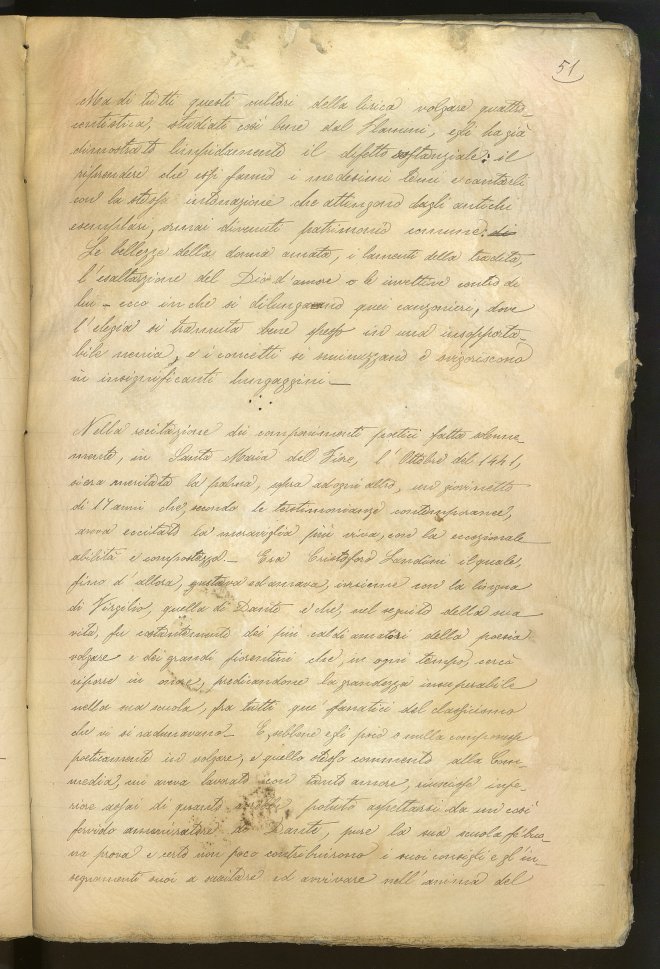 51
Ma di tutti questi cultori della lirica volgare quattro-
centistica, studiati così bene dal Flamini, egli ha già
dimostrato limpidamente il difetto sostanziale: il
riprendere che essi fanno i medesimi temi e cantarli
con la stessa intonazione che attengono dagli antichi
esemplari, ormai divenuti patrimonio comune: di
Le bellezze della donna amata, i lamenti della tradita,
l'esaltazione del Dio d'amore o le invettive contro di
lui - ecco in che si dilungano quei canzonieri, dove
l'elegia si tramuta bene spesso in una insopporta-
bile nenia, e i concetti si sminuzzano e svigoriscono
in insignificanti lungaggini -
Nella recitazione dei componimenti poetici fatta solenne-
mente, in Santa Maria del Fiore, l'Ottobre del 1441,
si era meritata la palma, sopra ad ogni altro, un giovinetto
di 17 anni che, secondo le testimonianze contemporanee,
aveva eccitato la meraviglia più viva, con la eccezionale
abilità e compostezza - Era Cristoforo Landini il quale,
fino d'allora, gustava ed amava, insieme con la lingua
di Virgilio, quella di Dante e che, nel seguito della sua
vita, fu costantemente dei più caldi amatori della poesia
volgare e dei grandi fiorentini che, in ogni tempo, cercò
riporre in onore, predicandone la grandezza insuperabile
nella sua scuola, fra tutti quei fanatici del classicismo
che vi si radunavano - E, sebbene egli poco o nulla componesse
poeticamente in volgare, e quello stesso commento alla Com-
media, cui aveva lavorato con tanto amore, riuscisse infe-
riore assai di quanto potuto aspettarsi da un così
fervido ammiratore di Dante, pure la sua scuola fè buo-
na prova e certo non poco contribuirono i suoi consigli e gl'in-
segnamenti suoi a suscitare ed avvivare nell'anima del